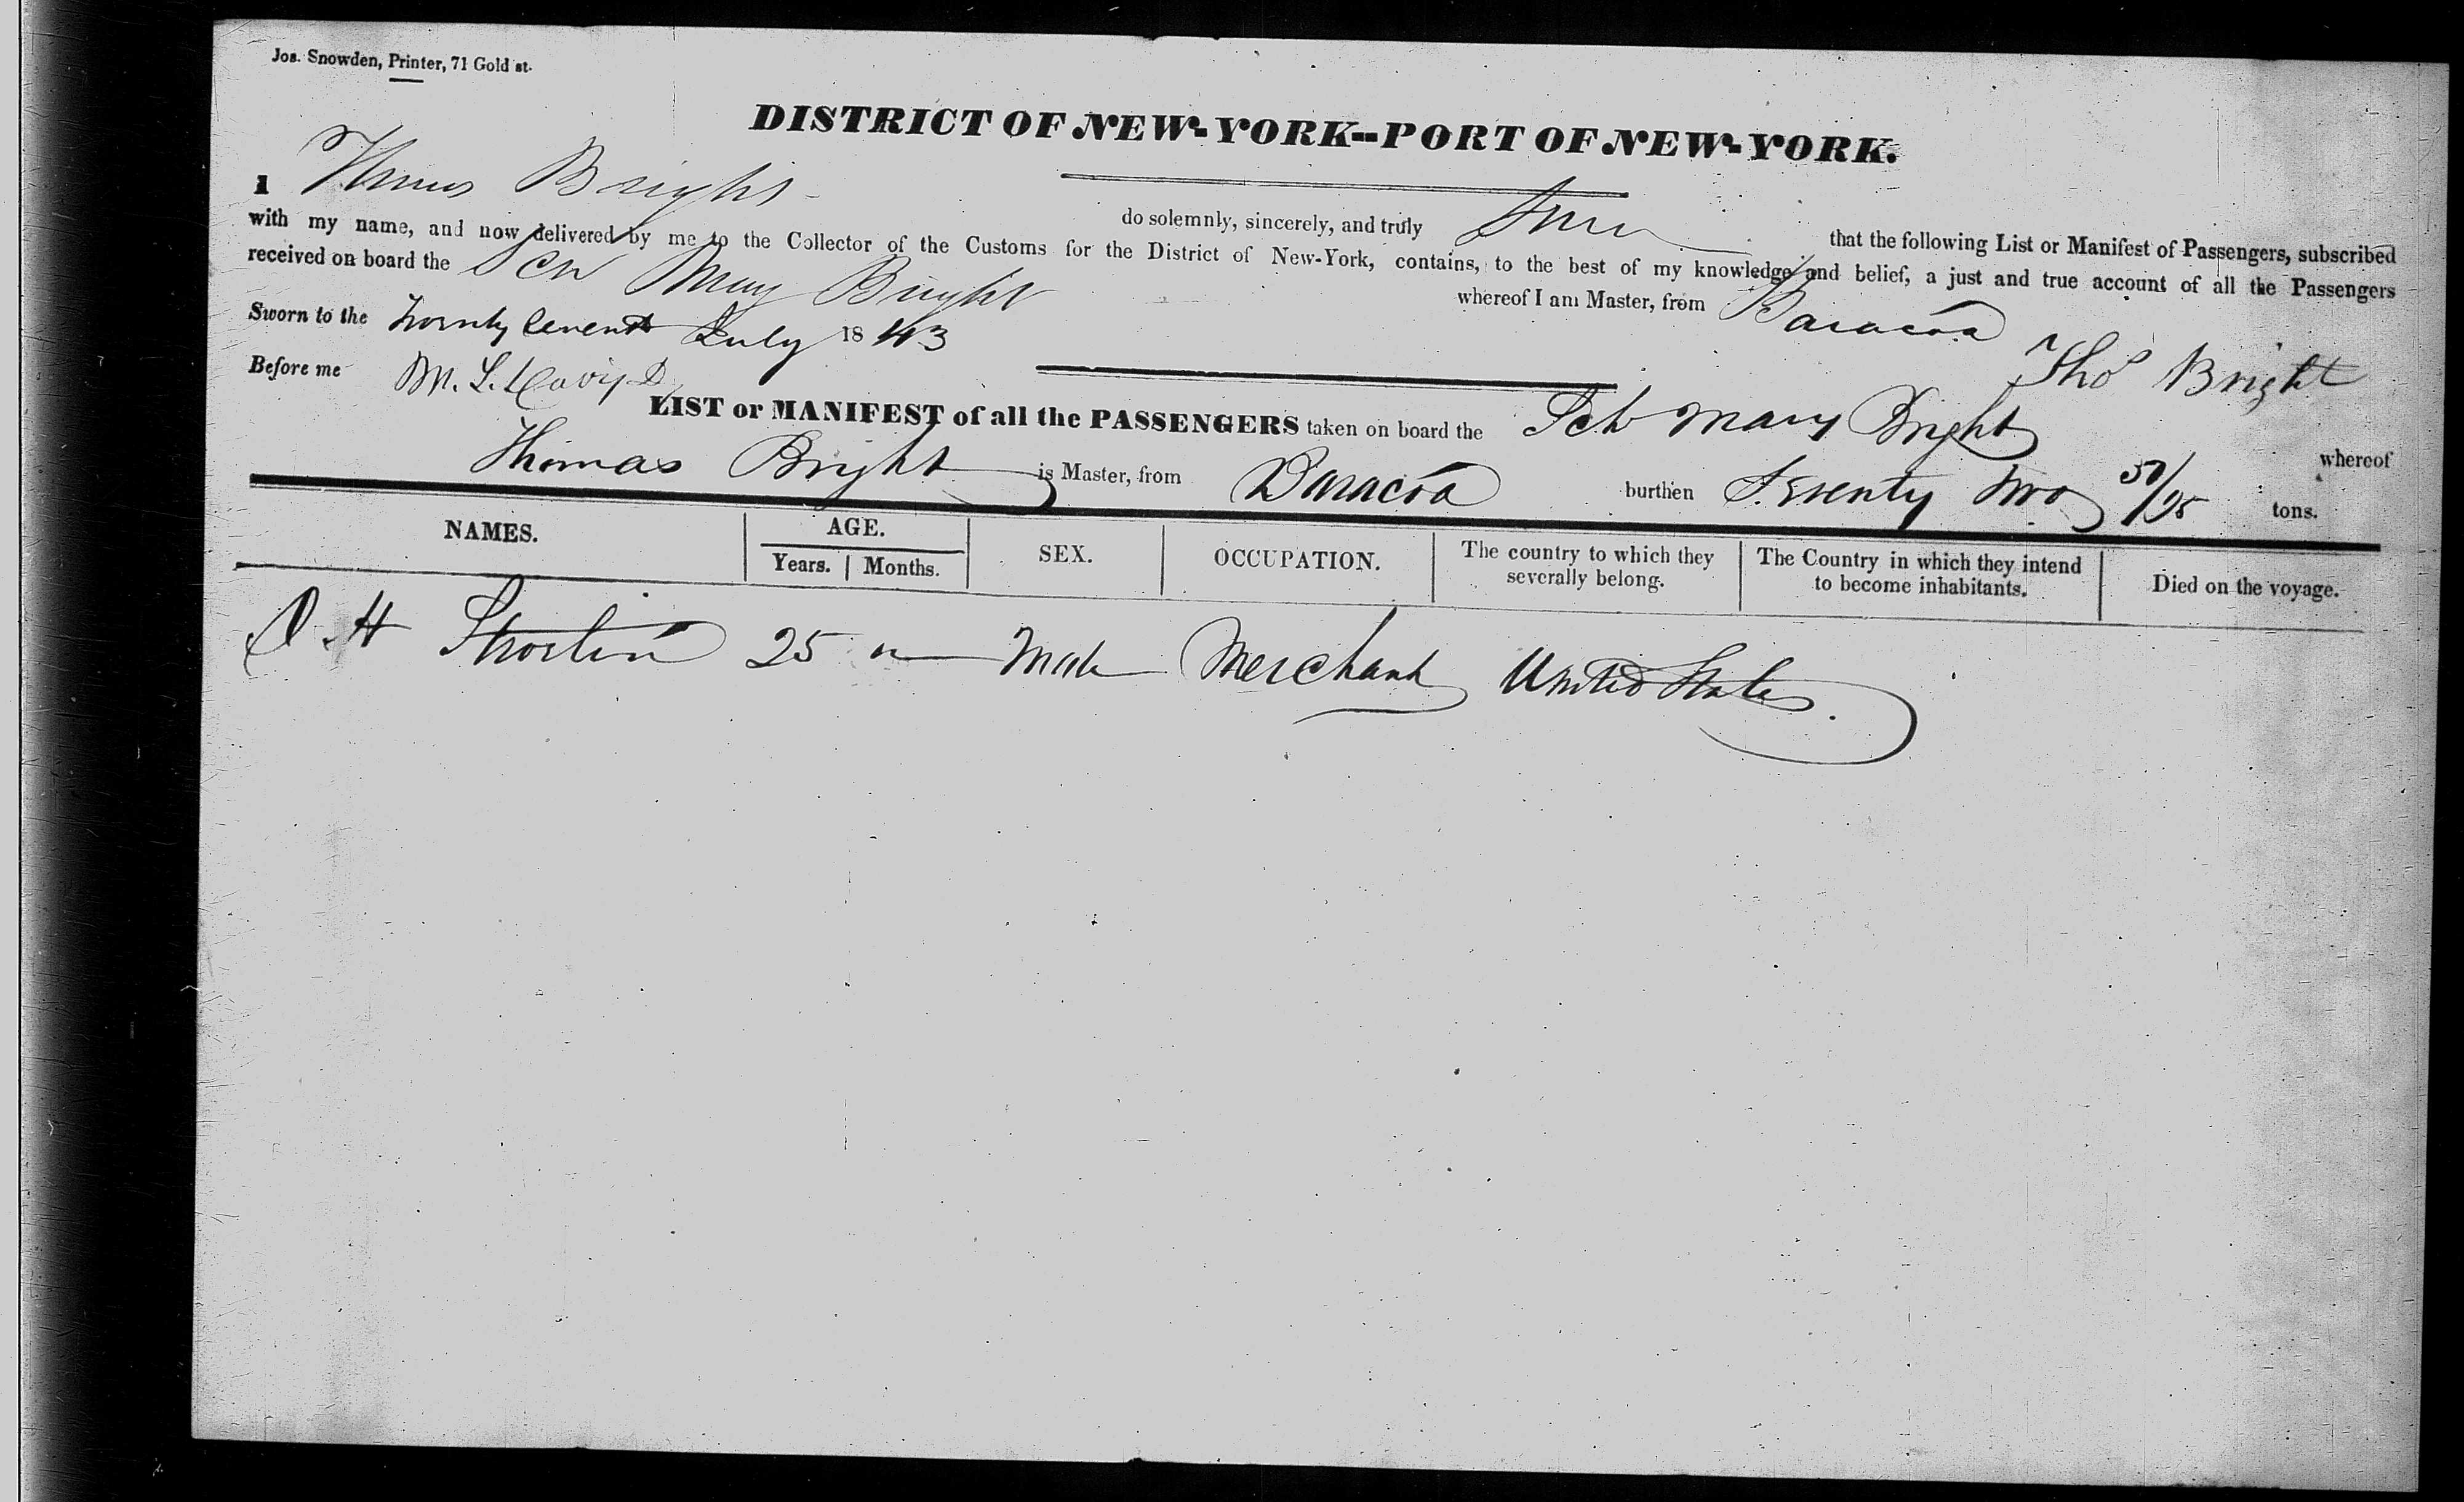 Jos. Snowden, Printer, 71 Gold st.
DISTRICT OF NEW-YORK--PORT OF NEW-YORK.
I Thomas Bright do solemnly, sincerely, and truly that the following List or Manifest of Passengers, subscribed
with my name, and now delivered by me to the Collector of the Customs for the District of New-York, contains, to the best of my knowledge and belief, a just and true account of all the Passengers
received on board the Sch Mary Bright whereof I am Master, from Baracoa
Sworn to the Twenty Seventh July 1843
Thos Bright
Before me M. L. Davis D
LIST or MANIFEST of all the PASSENGERS taken on board the Sch Mary Bright whereof
Thomas Bright is Master, from Baracoa burthen Seventy two /95 tons.
NAMES. AGE. SEX. OCCUPATION. The country to which they severally belong. The Country in which they intend to become inhabitants. Died on the voyage.
Years. Months.
H 25 Male Merchant United States.